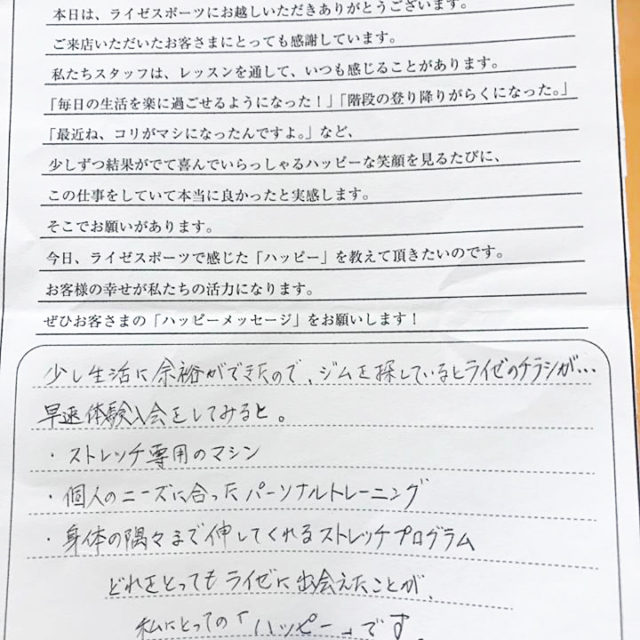 本日は、ライゼスポーツにお越しいただきありがとうございます。
ご来店いただいたお客さまにとっても感謝しています。
私たちスタッフは、レッスンを通して、いつも感じることがあります。
「毎日の生活を楽に過ごせるようになった！」「階段の登り降りがらくになった。」
「最近ね、コリがマシになったんですよ。」など、
少しずつ結果がでて喜んでいらっしゃるハッピーな笑顔を見るたびに、
この仕事をしていて本当に良かったと実感します。
そこでお願いがあります。
今日、ライゼスポーツで感じた「ハッピー」を教えて頂きたいのです。
お客様の幸せが私たちの活力になります。
ぜひお客さまの「ハッピーメッセージ」をお願いします！
少し生活に余裕ができたので、ジムを探しているとライゼのチラシが…
早速体験入会をしてみると。
・ストレッチ専用のマシン
・個人のニーズに合ったパーソナルトレーニング
・身体の隅々まで伸してくれるストレッチプログラム
どれをとってもライゼに出会えたことが、
私にとっての「ハッピー」です。